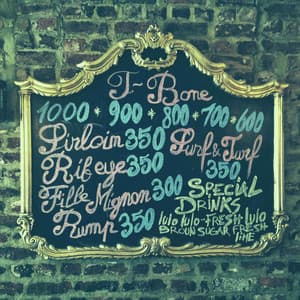 T-Bone
1000 * 900 * 800 * 700 * 600
Sirloin 350
Rib eye 350
Fille-Mignon 300
Rump 350
Surf & Turf
350
SPECIAL
DRINKS
lulo lulo-FRESH-lulo
BROUN SUGAR FRESH
lime